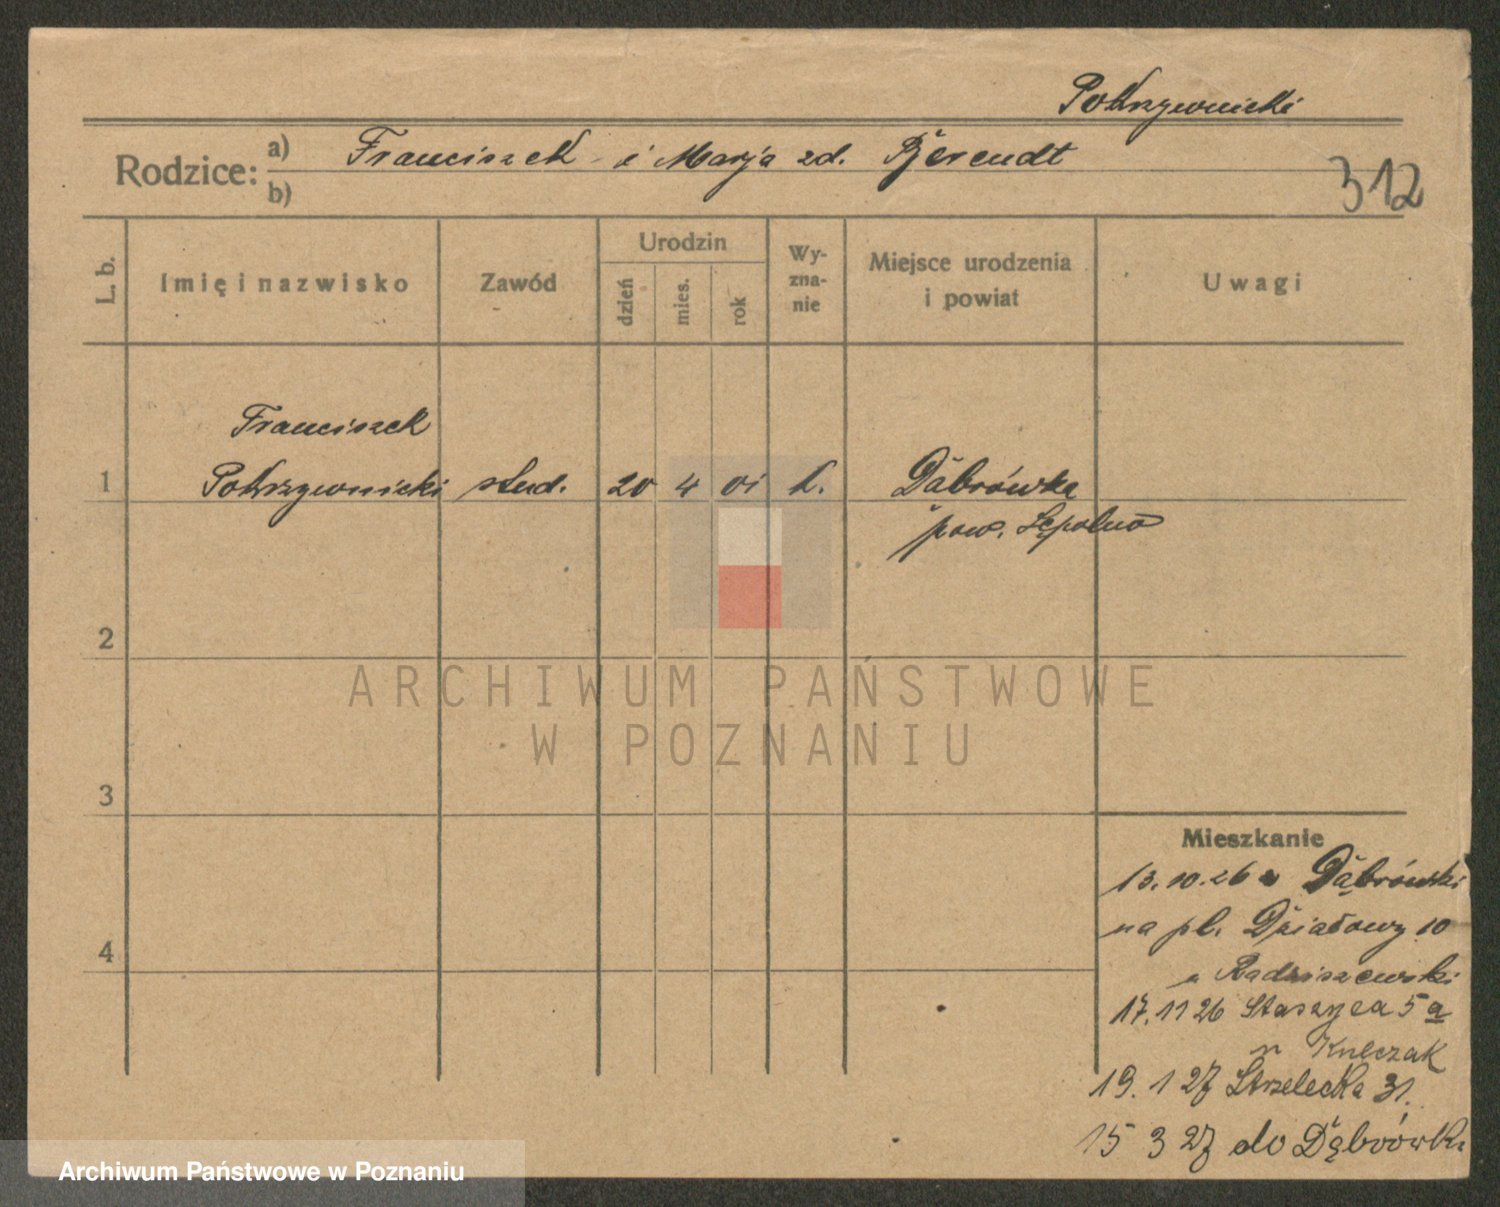 Pokrzywnicki
Rodzice: a) Franciszek i Marja zd. Berendt
b)
312
L. b.
Imię i nazwisko
Zawód
Urodzin
dzień
mies.
rok
Wy-
zna-
nie
Miejsce urodzenia
i powiat
Uwagi
Franciszek
1 Pokrzywnicki stud. 20 4 01 k. Dąbrówka
pow. Sępolno
2
3
4
ARCHIWUM PAŃSTWOWE
W POZNANIU
Mieszkanie
13.10.26 z Dąbrówki
na pl. Działowy 10
u Radziszewski
17.11 26 Staszyca 5a
u Kulczak
19. 1 27 Strzelecka 31.
15 3 27 do Dąbrówki
Archiwum Państwowe w Poznaniu